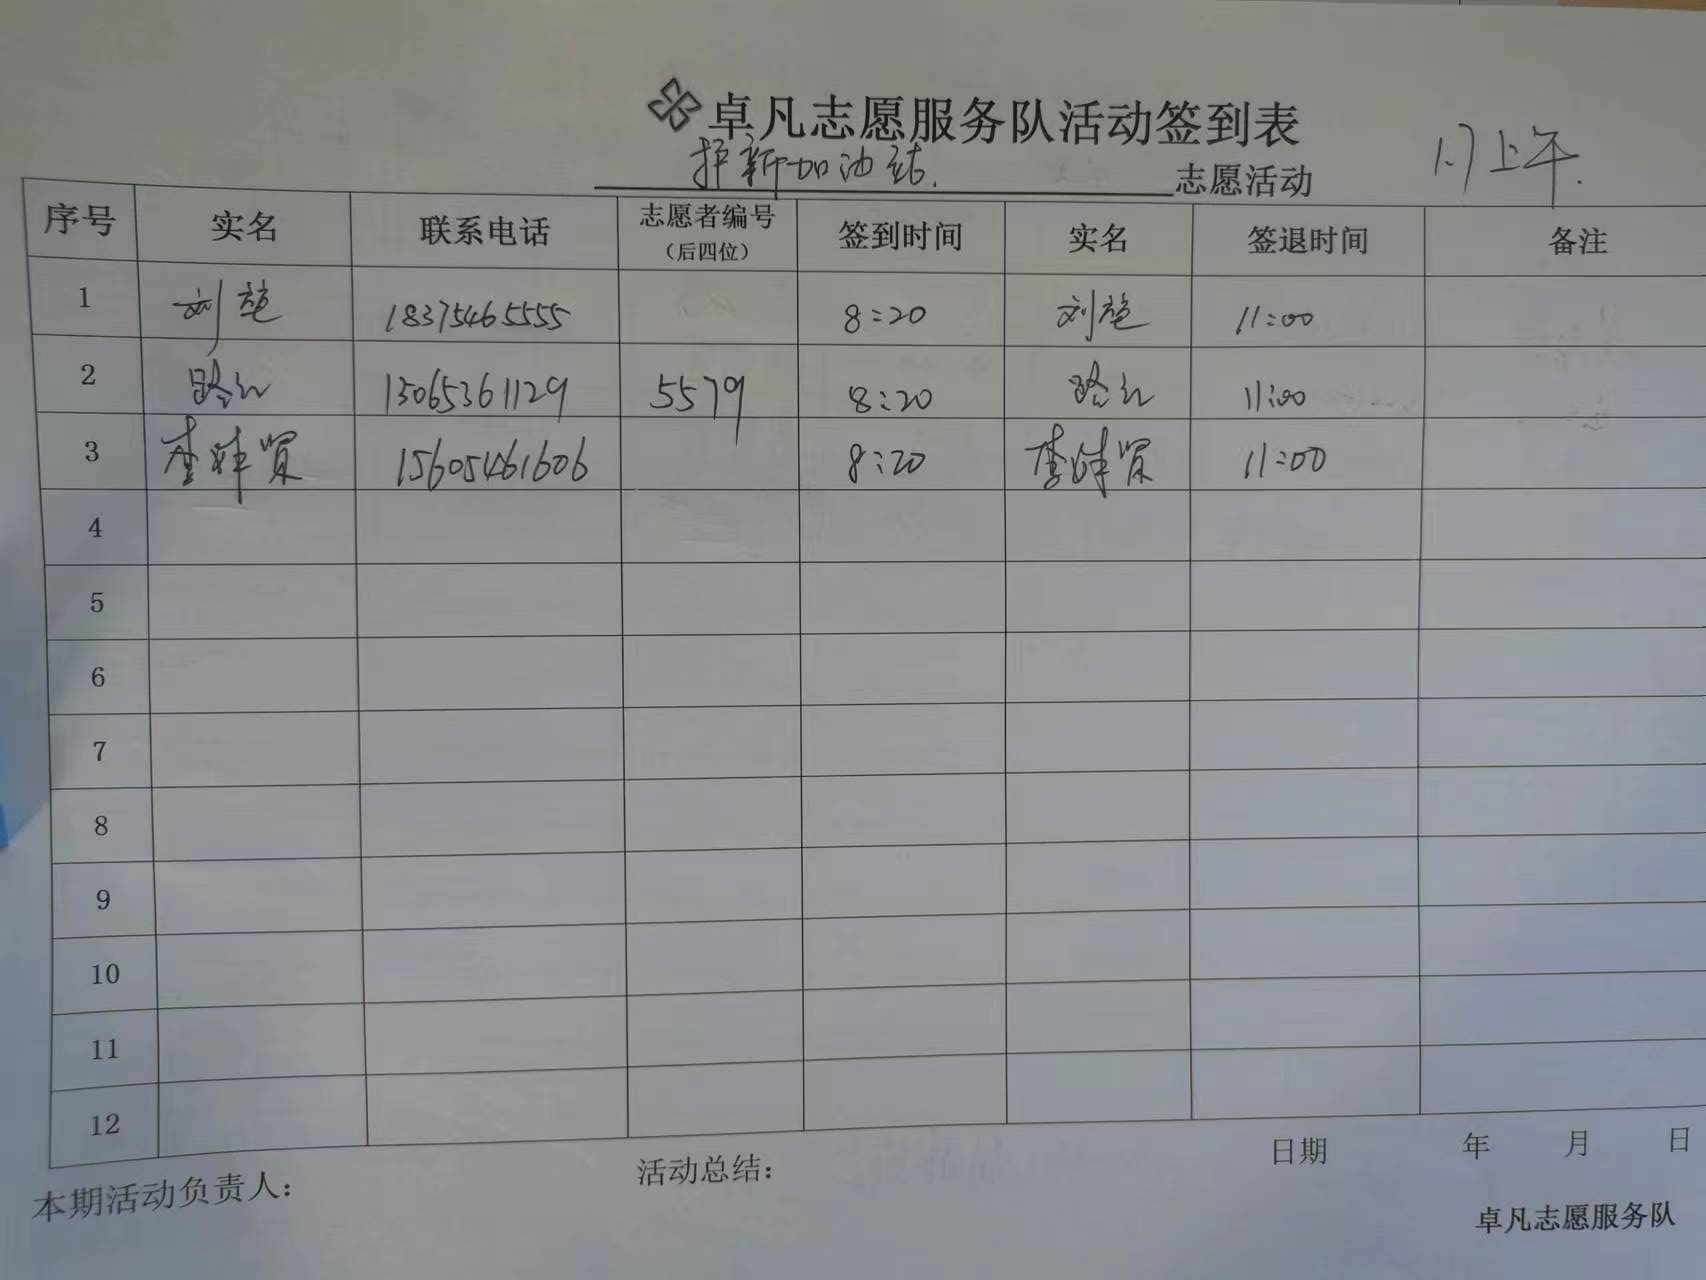 卓凡志愿服务队活动签到表
护新加油站. 志愿活动 1.7上午.
序号 实名 联系电话 志愿者编号（后四位） 签到时间 实名 签退时间 备注
1 刘 18375465555 8:20 刘 11:00
2 路红 13065361129 5579 8:20 路红 11:00
3 李 贤 15605461606 8:20 李 贤 11:00
4
5
6
7
8
9
10
11
12
本期活动负责人： 活动总结： 日期 年 月 日
卓凡志愿服务队